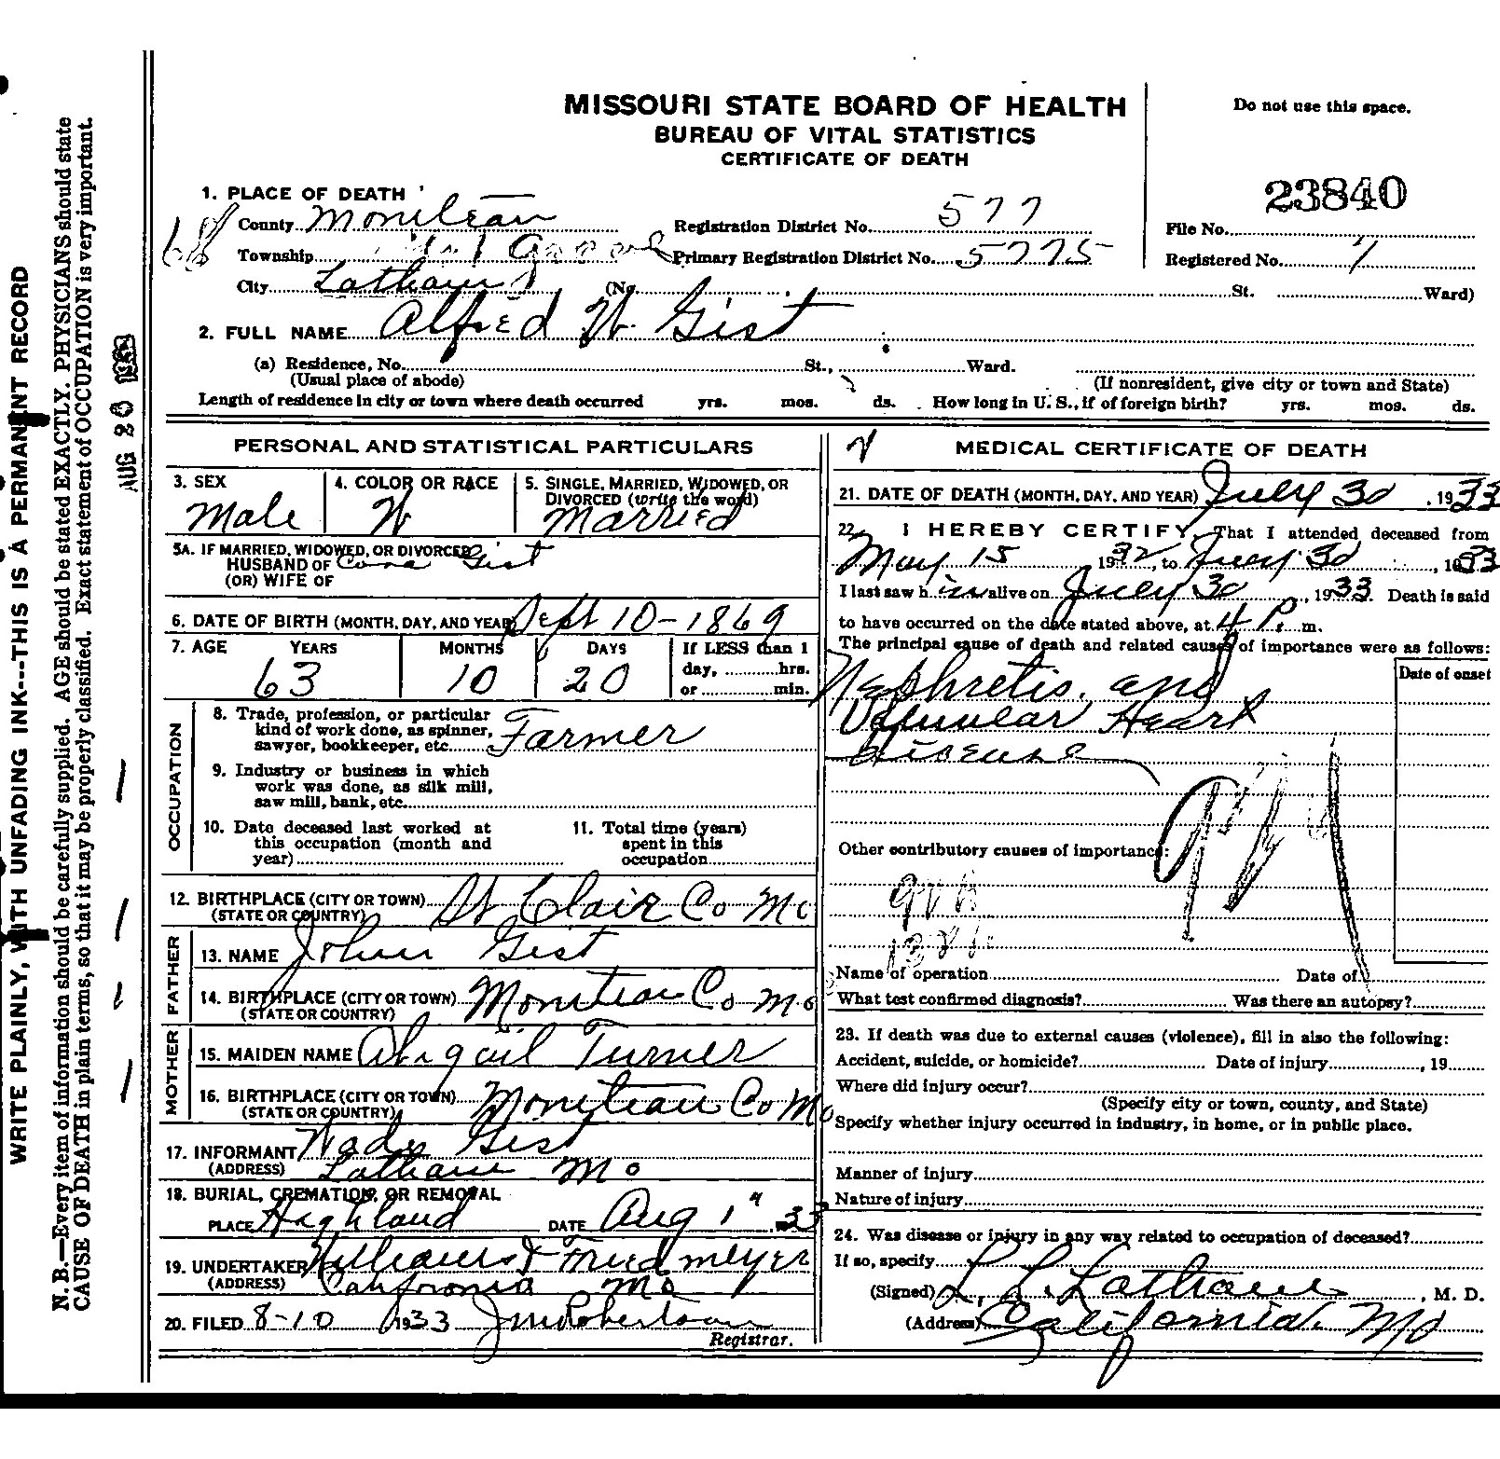 MISSOURI STATE BOARD OF HEALTH
BUREAU OF VITAL STATISTICS
CERTIFICATE OF DEATH
Do not use this space.
23840
1. PLACE OF DEATH
County Moniteau
Registration District No. 577
File No.
Township
Primary Registration District No. 5775
Registered No. 7
68
City Latham (No. St. Ward)
2. FULL NAME Alfred W. Gist
(a) Residence, No. St., Ward.
(Usual place of abode) (If nonresident, give city or town and State)
Length of residence in city or town where death occurred yrs. mos. ds. How long in U. S., if of foreign birth? yrs. mos. ds.
PERSONAL AND STATISTICAL PARTICULARS
3. SEX Male
4. COLOR OR RACE W
5. SINGLE, MARRIED, WIDOWED, OR DIVORCED (write the word) Married
5A. IF MARRIED, WIDOWED, OR DIVORCED
HUSBAND OF Gist
(OR) WIFE OF
6. DATE OF BIRTH (MONTH, DAY, AND YEAR) Sept 10-1869
7. AGE YEARS MONTHS DAYS If LESS than 1
63 10 20 day, hrs.
or min.
OCCUPATION
8. Trade, profession, or particular
kind of work done, as spinner,
sawyer, bookkeeper, etc. Farmer
9. Industry or business in which
work was done, as silk mill,
saw mill, bank, etc.
10. Date deceased last worked at
this occupation (month and
year)
11. Total time (years)
spent in this
occupation
12. BIRTHPLACE (CITY OR TOWN) St Clair Co Mo
(STATE OR COUNTRY)
FATHER
13. NAME John Gist
14. BIRTHPLACE (CITY OR TOWN) Moniteau Co Mo
(STATE OR COUNTRY)
MOTHER
15. MAIDEN NAME Abigail Turner
16. BIRTHPLACE (CITY OR TOWN) Moniteau Co Mo
(STATE OR COUNTRY)
17. INFORMANT Wade Gist
(ADDRESS) Latham Mo
18. BURIAL, CREMATION, OR REMOVAL
PLACE Highland DATE Aug 1" 33
19. UNDERTAKER Williams & Friedmeyer
(ADDRESS) California Mo
20. FILED 8-10 1933 J M Robertson
Registrar.
MEDICAL CERTIFICATE OF DEATH
21. DATE OF DEATH (MONTH, DAY, AND YEAR) July 30, 1933
22. I HEREBY CERTIFY, That I attended deceased from
May 15 1932, to July 30, 1933
I last saw him alive on July 30, 1933. Death is said
to have occurred on the date stated above, at 4 P. m.
The principal cause of death and related causes of importance were as follows:
Date of onset
Nephretis. and
Valvular Heart
disease
Other contributory causes of importance:
Name of operation Date of
What test confirmed diagnosis? Was there an autopsy?
23. If death was due to external causes (violence), fill in also the following:
Accident, suicide, or homicide? Date of injury, 19
Where did injury occur?
(Specify city or town, county, and State)
Specify whether injury occurred in industry, in home, or in public place.
Manner of injury
Nature of injury
24. Was disease or injury in any way related to occupation of deceased?
If so, specify
(Signed) L. L. Latham, M. D.
(Address) California. Mo
WRITE PLAINLY, WITH UNFADING INK---THIS IS A PERMANENT RECORD
N. B.—Every item of information should be carefully supplied. AGE should be stated EXACTLY. PHYSICIANS should state
CAUSE OF DEATH in plain terms, so that it may be properly classified. Exact statement of OCCUPATION is very important.
AUG 20